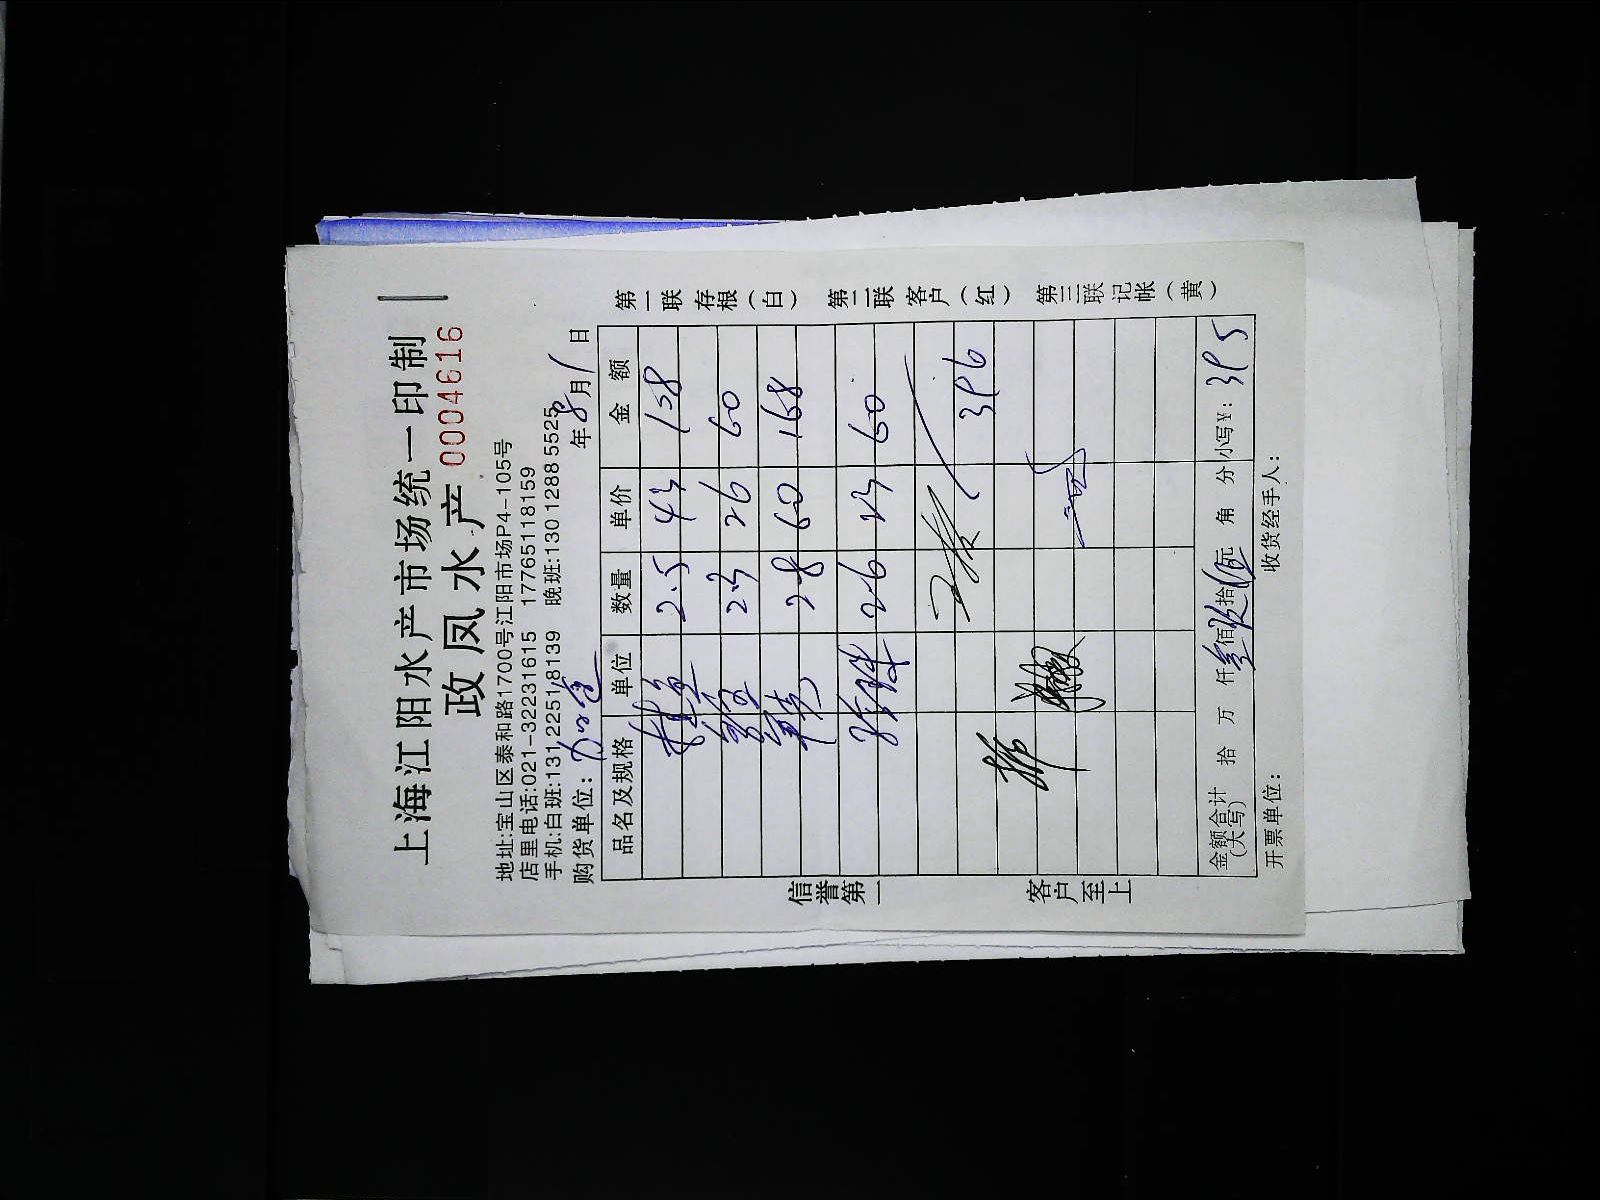 上海江阳水产市场统一印制
政凤水产 0004616
地址:宝山区泰和路1700号江阳市场P4-105号
店里电话:021-32231615 17765118159
手机:白班:131 2251 8139 晚班:130 1288 5525
购货单位: 年8月1日
品名及规格 单位 数量 单价 金额
2.5 43 108
2.3 26 60
28 60 168
26 23 60
396
金额合计(大写) 拾 万 仟叁佰玖拾伍元 角 分 小写¥: 395
开票单位: 收货经手人:
信誉第一
客户至上
第一联 存根(白) 第二联 客户(红) 第三联 记帐(黄)